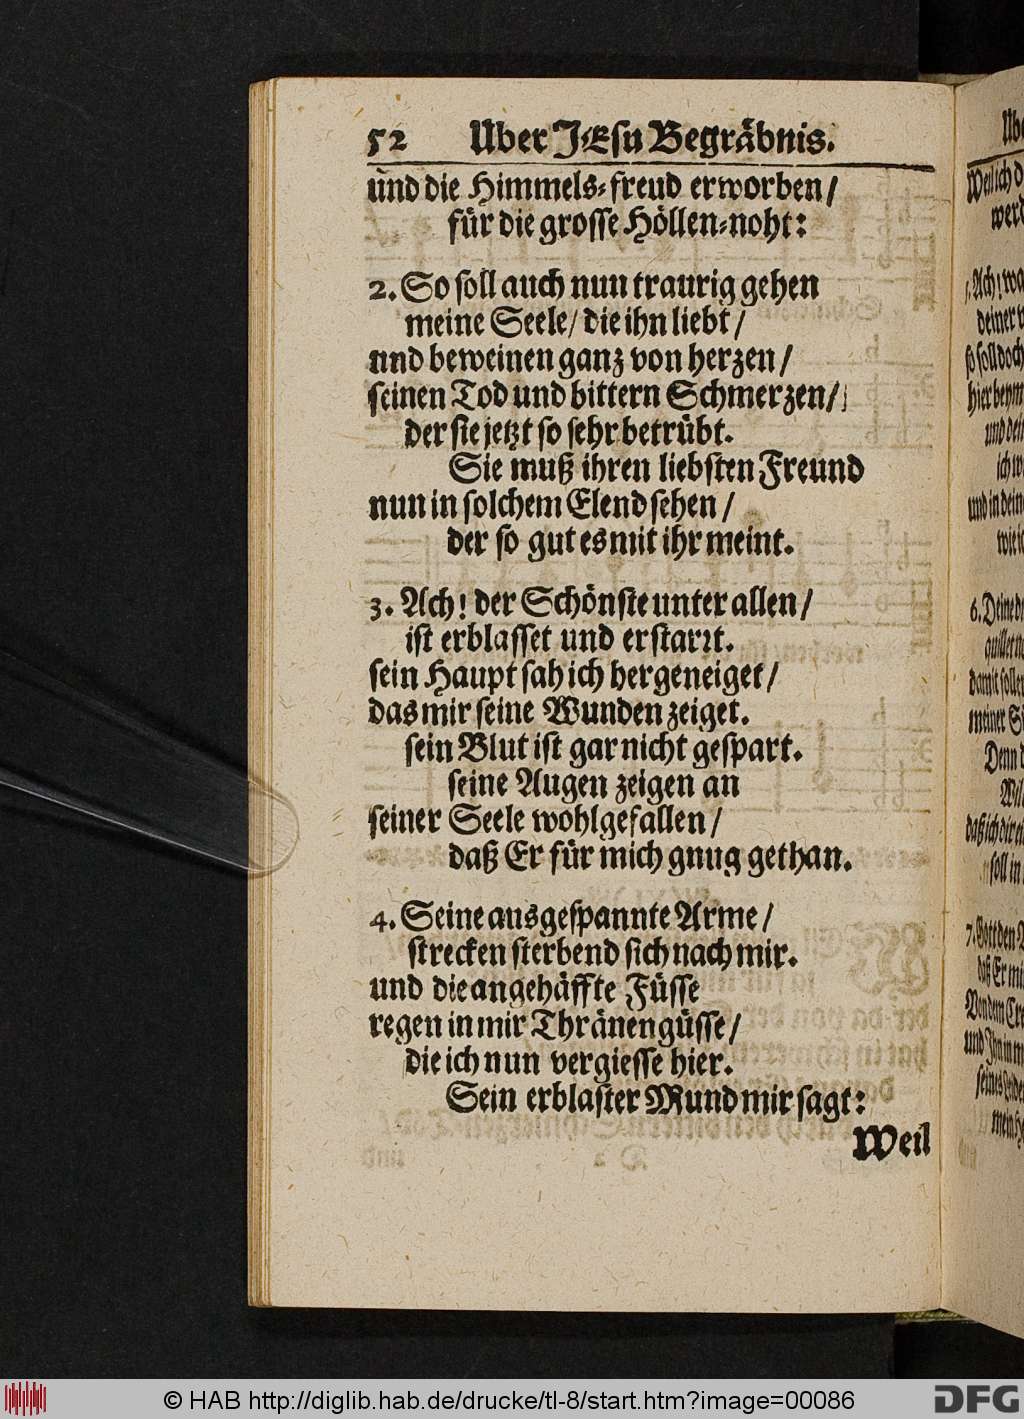 52 Uber JEsu Begräbnis.
und die Himmels-freud erworben/
für die grosse Höllen-noht:
2. So soll auch nun traurig gehen
meine Seele/ die ihn liebt/
und beweinen ganz von herzen/
seinen Tod und bittern Schmerzen/
der sie jetzt so sehr betrübt.
Sie muß ihren liebsten Freund
nun in solchem Elend sehen/
der so gut es mit ihr meint.
3. Ach! der Schönste unter allen/
ist erblasset und erstarrt.
sein Haupt sah ich hergeneiget/
das mir seine Wunden zeiget.
sein Blut ist gar nicht gespart.
seine Augen zeigen an
seiner Seele wohlgefallen/
daß Er für mich gnug gethan.
4. Seine ausgespannte Arme/
strecken sterbend sich nach mir.
und die angehäffte Füsse
regen in mir Thränengüsse/
die ich nun vergiesse hier.
Sein erblaster Mund mir sagt:
Weil
© HAB http://diglib.hab.de/drucke/tl-8/start.htm?image=00086
DFG